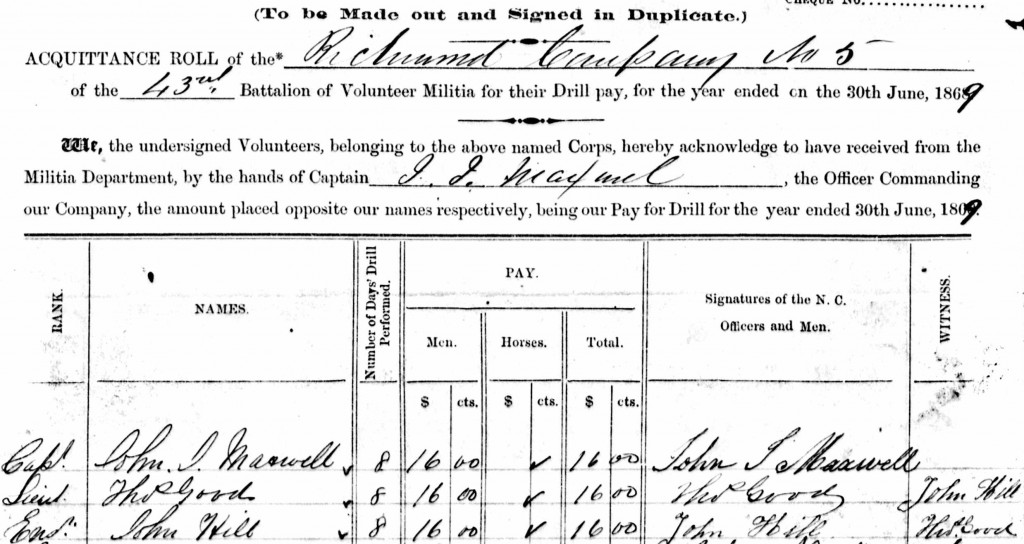 CHEQUE NO..................
(To be Made out and Signed in Duplicate.)
ACQUITTANCE ROLL of the* Richmond Company No 5
of the 43rd Battalion of Volunteer Militia for their Drill pay, for the year ended on the 30th June, 1869
We, the undersigned Volunteers, belonging to the above named Corps, hereby acknowledge to have received from the
Militia Department, by the hands of Captain J. J. Maxwell, the Officer Commanding
our Company, the amount placed opposite our names respectively, being our Pay for Drill for the year ended 30th June, 1869.
RANK. NAMES. Number of Days' Drill Performed. PAY. Signatures of the N. C. Officers and Men. WITNESS.
Men. Horses. Total.
$ cts. $ cts. $ cts.
Capt. John. J. Maxwell 8 16 00 ✓ 16 00 John J Maxwell
Lieut Thos Good 8 16 00 ✓ 16 00 Thos Good John Hill
Ens. John Hill ✓ 8 16 00 ✓ 16 00 John Hill Thos Good